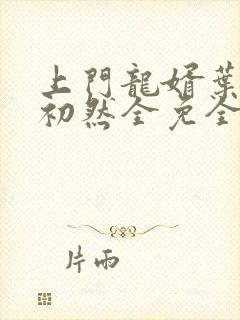 上門龍婿葉
初然全免全
片雨